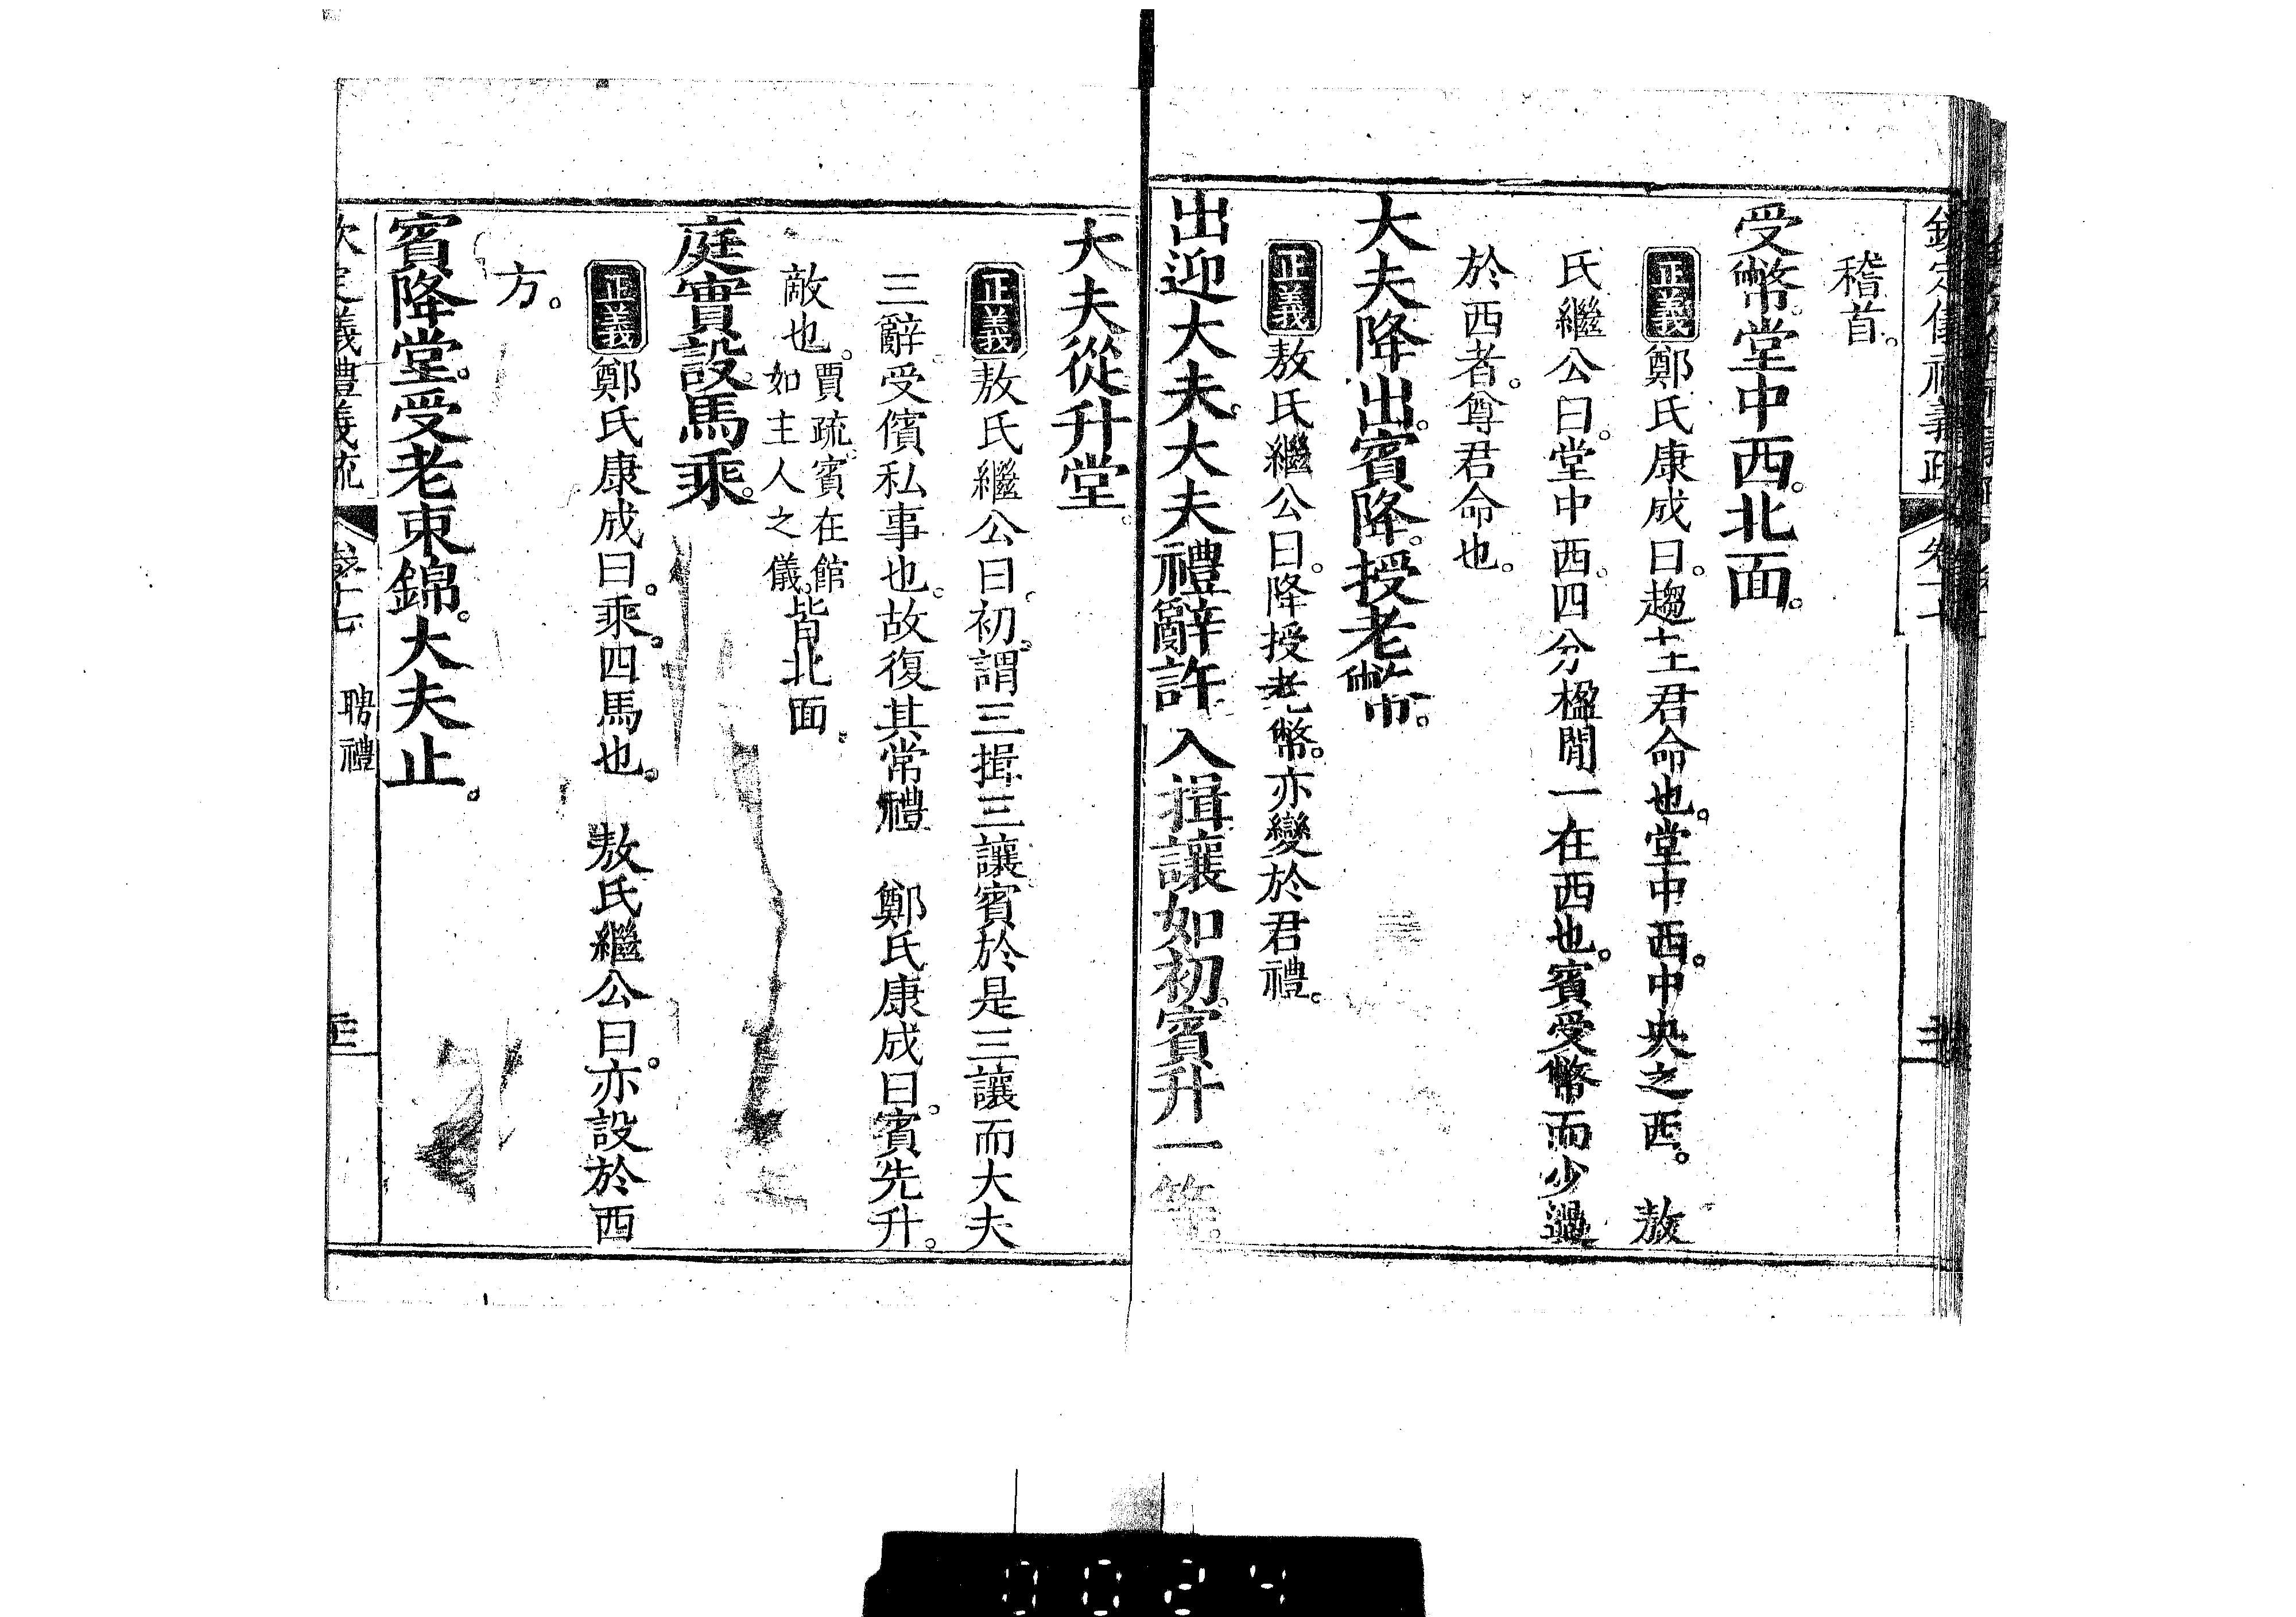 稽首。
受幣。堂中西。北面。
正義鄭氏康成曰。趨主君命也。堂中西。中央之西。　敖
氏繼公曰。堂中西。四分楹閒一在西也。賓受幣而少過
於西者。尊君命也。
大夫降出。賓降。授老幣。
正義敖氏繼公曰。降授老幣。亦變於君禮。
出迎大夫。大夫禮辭許　入揖讓如初。賓升一等。
大夫從升堂。
正義敖氏繼公曰。初。謂三揖三讓。賓於是三讓而大夫
三辭。受儐私事也。故復其常禮　鄭氏康成曰。賓先升。
敵也。賈疏。賓在館如主人之儀。皆北面。
庭實設。馬乘。
正義鄭氏康成曰。乘。四馬也。　敖氏繼公曰。亦設於西
方。
賓降堂。受老束錦。大夫止。
欽定義禮義疏　卷十七　聘禮